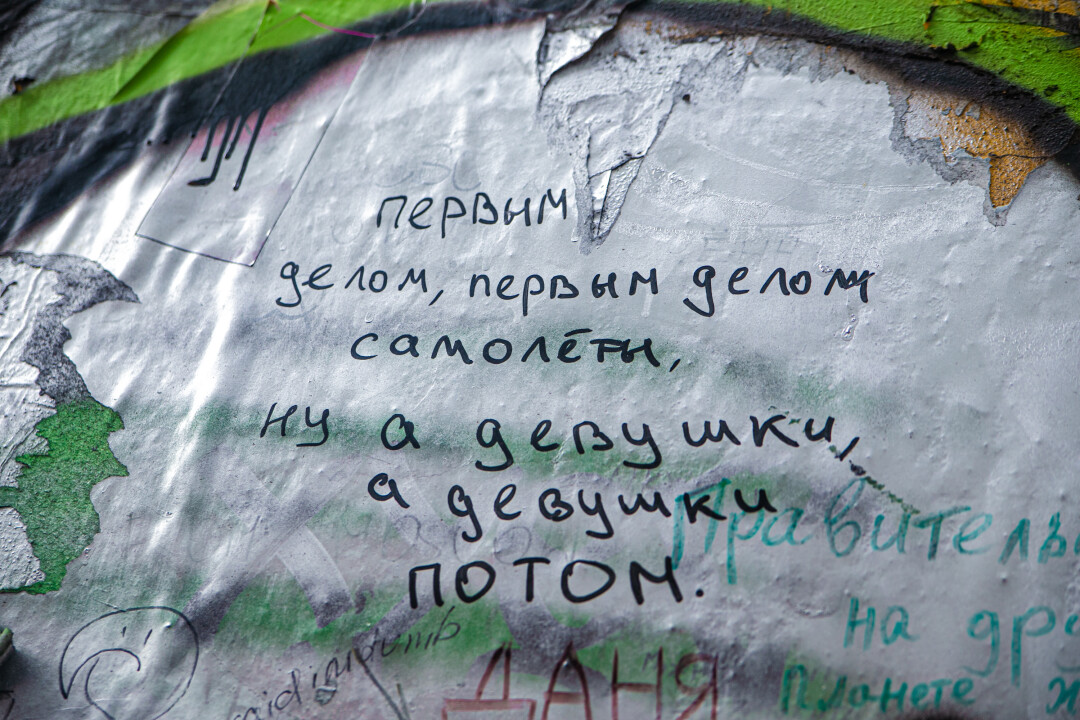 первым
делом, первым делом
самолёты,
ну а девушки,
а девушки
потом.
Правитель
на
планете
ДАНЯ